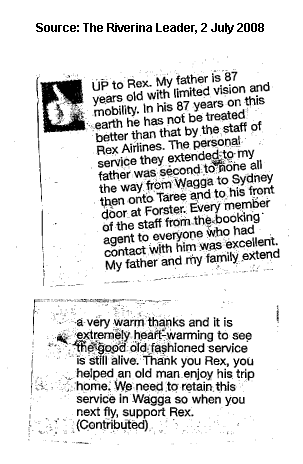 Source: The Riverina Leader, 2 July 2008
UP to Rex. My father is 87
years old with limited vision and
mobility. In his 87 years on this
earth he has not be treated
better than that by the staff of
Rex Airlines. The personal
service they extended to my
father was second to none all
the way from Wagga to Sydney
then onto Taree and to his front
door at Forster. Every member
of the staff from the booking
agent to everyone who had
contact with him was excellent.
My father and my family extend
a very warm thanks and it is
extremely heart-warming to see
the good old fashioned service
is still alive. Thank you Rex, you
helped an old man enjoy his trip
home. We need to retain this
service in Wagga so when you
next fly, support Rex.
(Contributed)